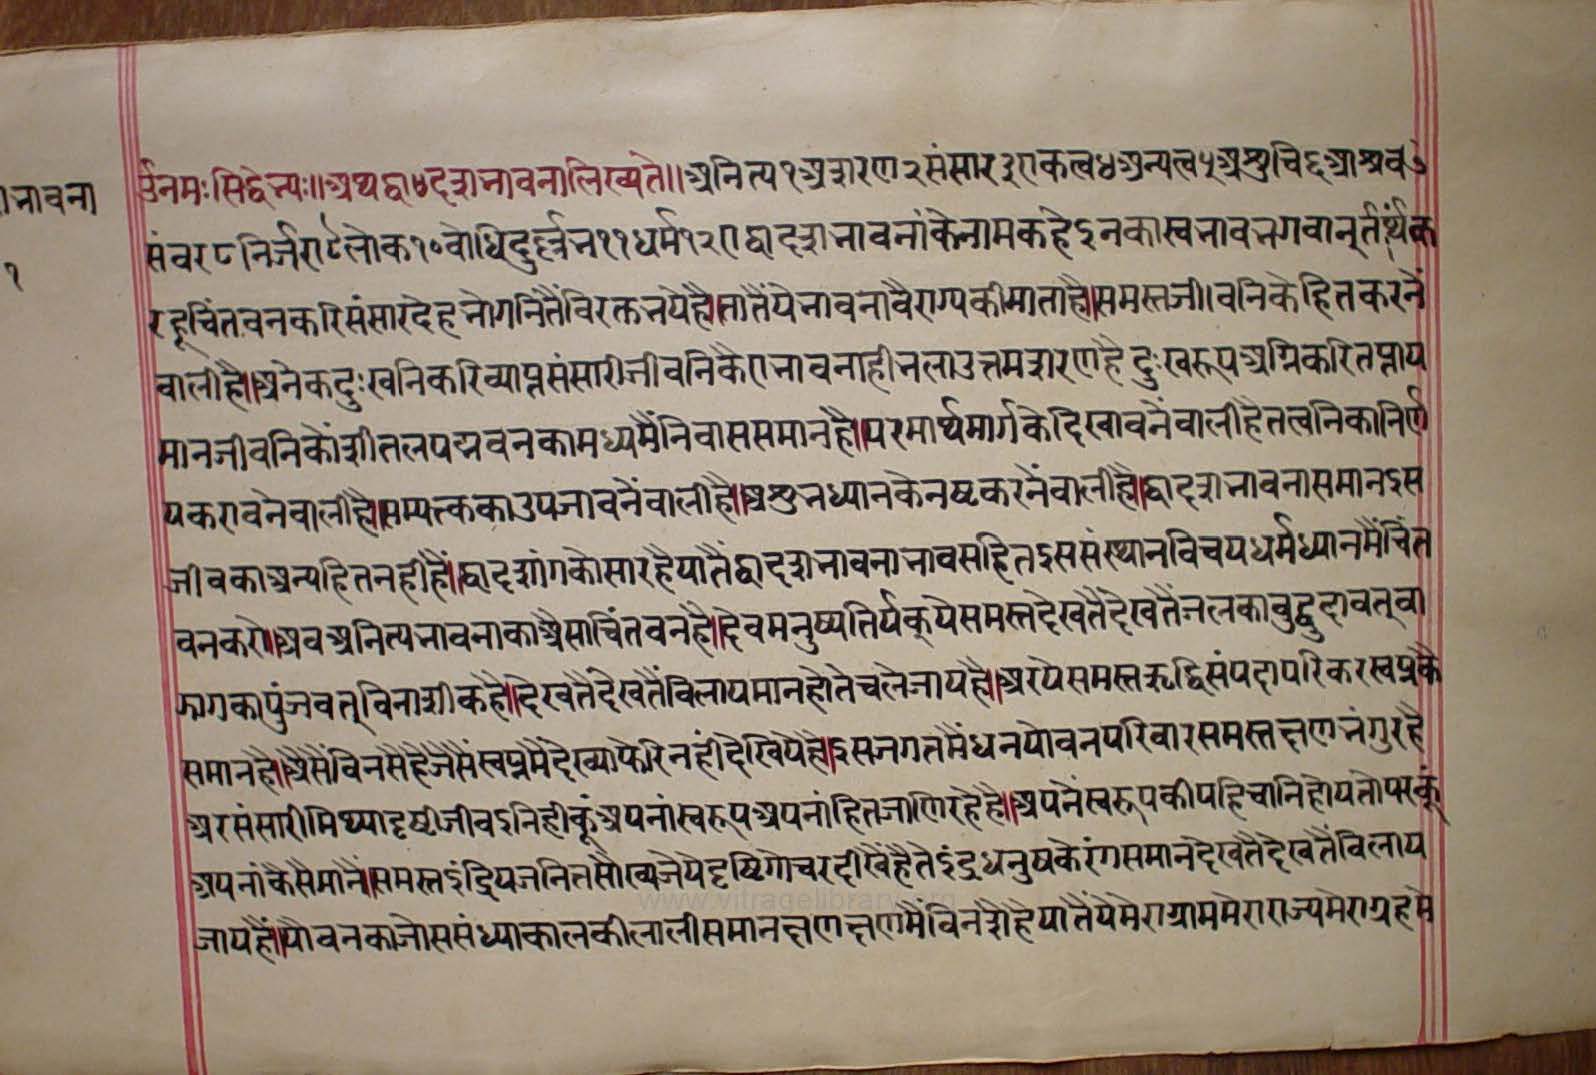 भावना
१
ॐनमःसिद्धेभ्यः॥अथद्वादशभावनालिख्यते॥अनित्य१अशरण२संसार३एकत्व४अन्यत्व५अशुचि६आश्रव७
संवर८निर्जरा९लोक१०बोधिदुर्ल्लभ११धर्म१२एद्वादशभावनांकेनामकहेइनकास्वभावभगवान्तीर्थंक
रहूचिंतवनकरिसंसारदेहभोगनितैंविरक्तभयेहै।तातैंयेभावनावैराग्यकीमाताहै।समस्तजीवनिकेहितकरनें
वालीहै।अनेकदुःखनिकरिव्याप्तसंसारीजीवनिकैएभावनाहीभलाउत्तमशरणहैदुःखरूपअग्निकरितप्ताय
मानजीवनिकोंशीतलपद्मवनकामध्यमैंनिवाससमानहै।परमार्थमार्गकेदिखावनेंवालीहैतत्वनिकानिर्ण
यकरावनेवालीहै।सम्यत्कका‌उपजावनेंवालीहै।अशुभध्यानकेनष्टकरनेंवालीहै।द्वादशभावनासमानइस
जीवकाअन्यहितनहीहै।द्वादशांगकोसारहैयातैंद्वादशभावनाभावसहितइससंस्थानविचयधर्मध्यानमैंचिंत
वनकरो।अवअनित्यभावनाकाअैसाचिंतवनहै।देवमनुष्यतिर्यक्येसमस्तदेखतैदेखतैंजलकाबुद्बुदावत्वा
झागकापुंजवत्विनाशीकहै।देखतैदेखतैंविलायमानहोतेचलेजायहै।अरयेसमस्तऋद्धिसंपदापरिकरस्वप्नकै
समानहै।अैसैंविनसैहैजैसैंस्वप्नमैंदेख्याफेरिनहींदेखियेहै।इसजगतमैंधनयौवनपरिवारसमस्तक्षणभंगुरहै
अरसंसारीमिथ्यादृष्टीजीवइनिहीकूंअपनांस्वरूपअपनांहितजाणिरहेहै।अपनेंस्वरूपकीपहिचानिहोयतोपरकूं
अपनांकैसैमानैं।समस्तइंद्रियजनितसौख्यजेयेदृष्टिगोचरदीखैंहैतेइंद्रधनुषकेरंगसमानदेखतैदेखतैंविलाय
जायहैं।यौवनकाजोससंध्याकालकीलालीसमानक्षणक्षणमैंविनशैहैयातैंयेमेराग्राममेराराज्यमेराग्रहमे
www.vitragelibrary.org